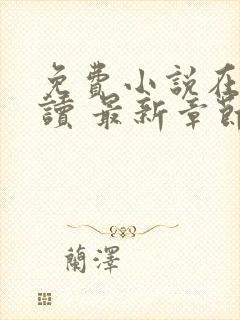 免費小說在
讀 最新章節
蘭澤